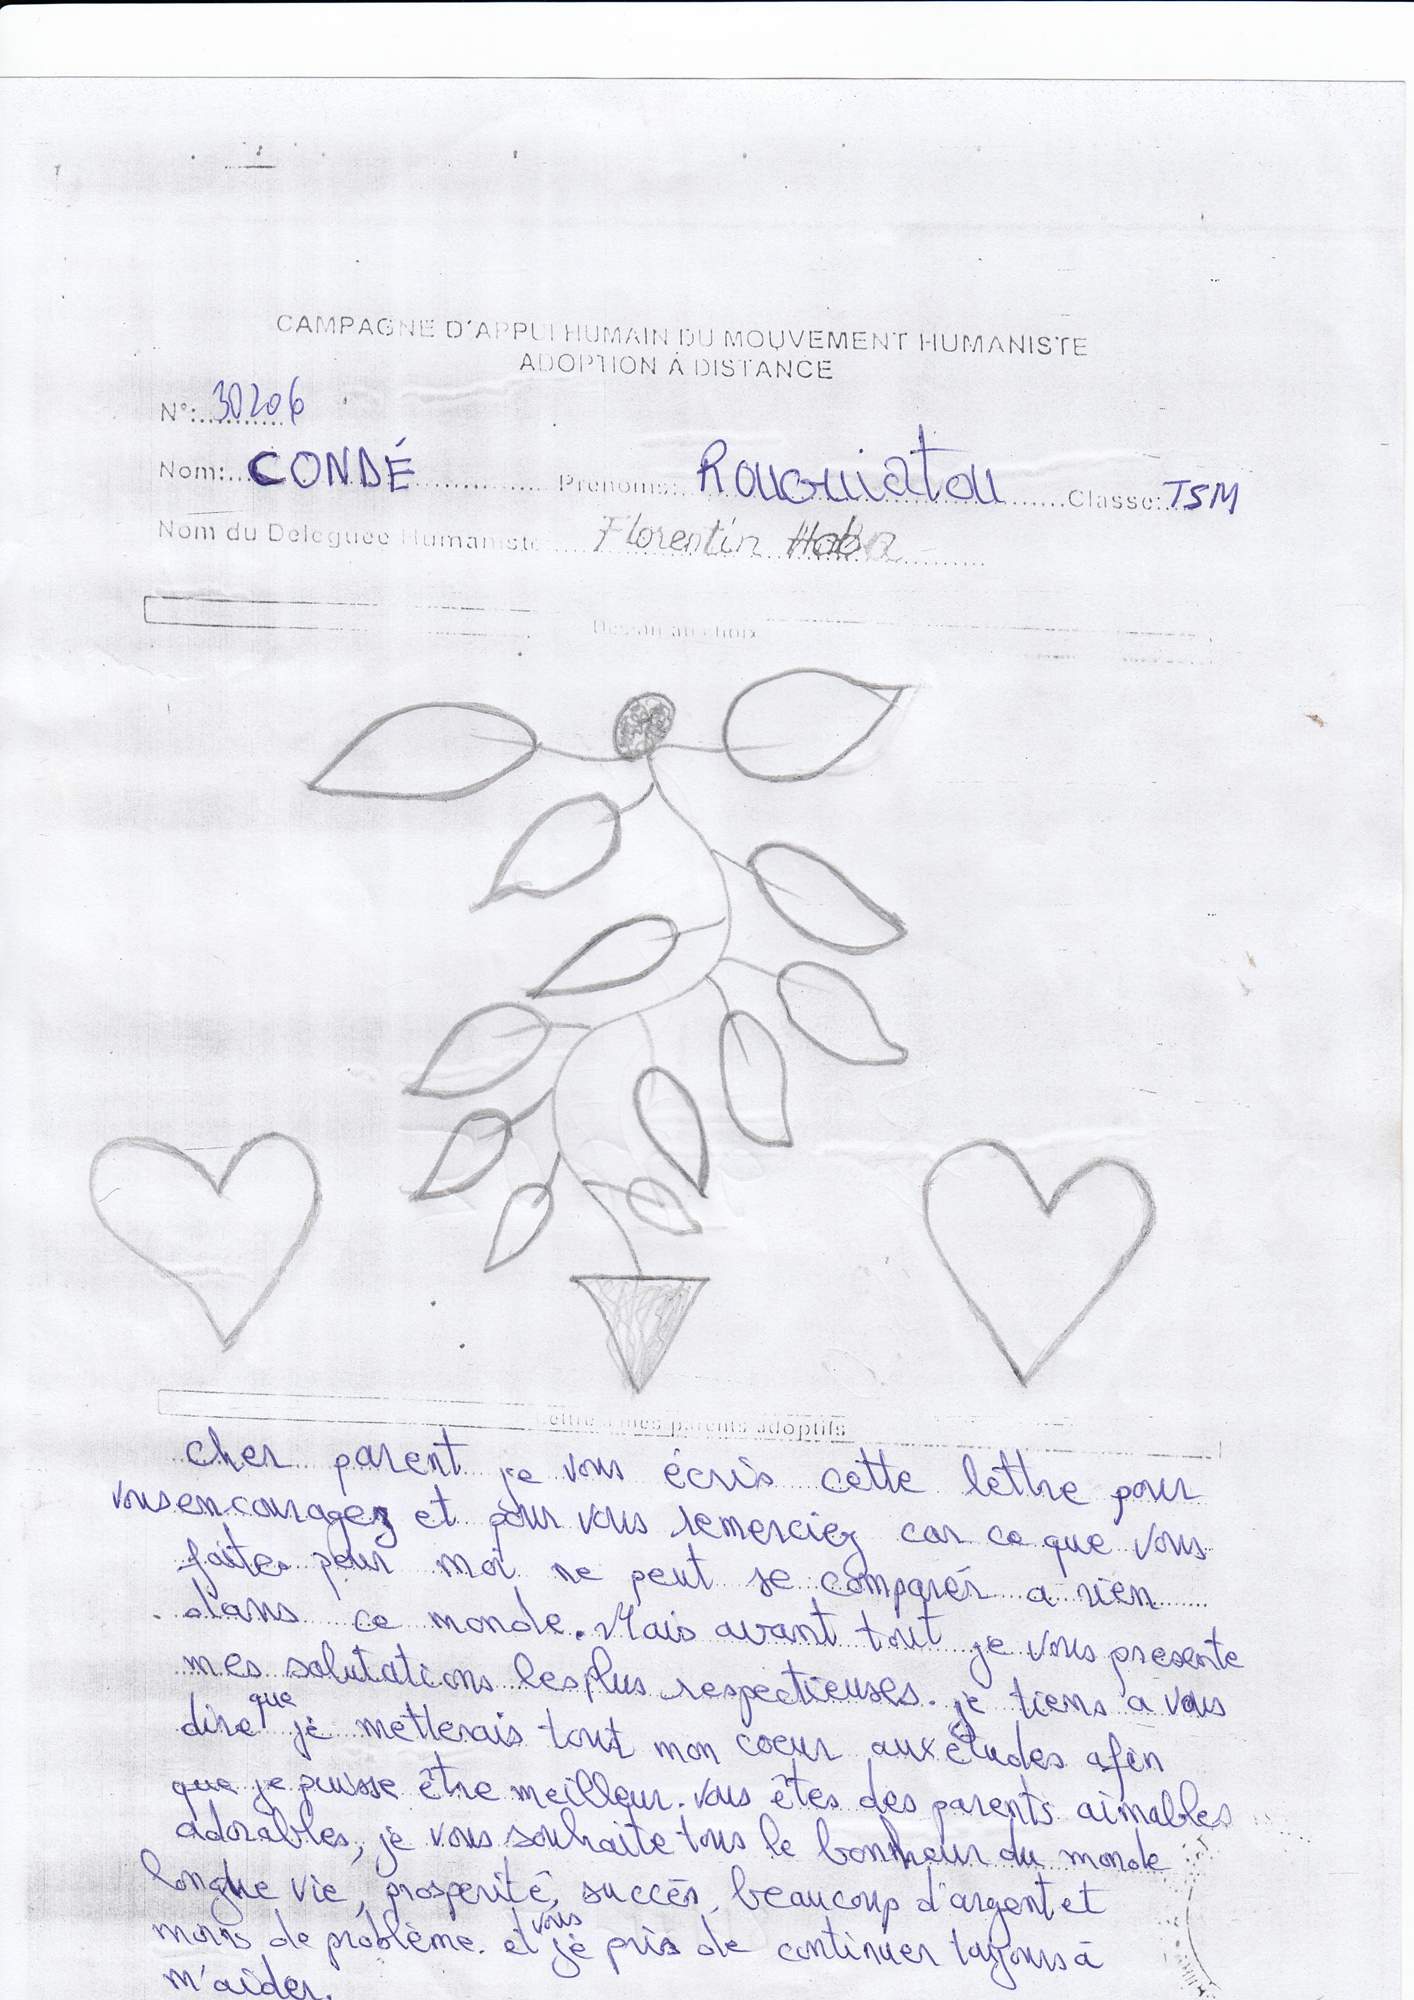 CAMPAGNE D'APPUI HUMAIN DU MOUVEMENT HUMANISTE
ADOPTION À DISTANCE
N°: 30206
Nom: CONDÉ Prénoms: Rouguiatou Classe: TSM
Nom du Deleguee Humaniste Florentin Haba
Dessin au choix
Lettre à mes parents adoptifs
cher parent je vous écris cette lettre pour
vous encouragez et pour vous remerciez car ce que vous
faites pour moi ne peut se comparér a rien
dans ce monde. Mais avant tout je vous presente
mes salutations les plus respectieuses. je tiens a vous
dire que je metterais tout mon coeur aux études afin
que je puisse être meilleur. vous êtes des parents aimables
adorables, je vous souhaite tous le bonheur du monde
longue vie, prosperité, succès, beaucoup d'argent et
moins de problème. et vous je pris de continuer toujours à
m'aider.